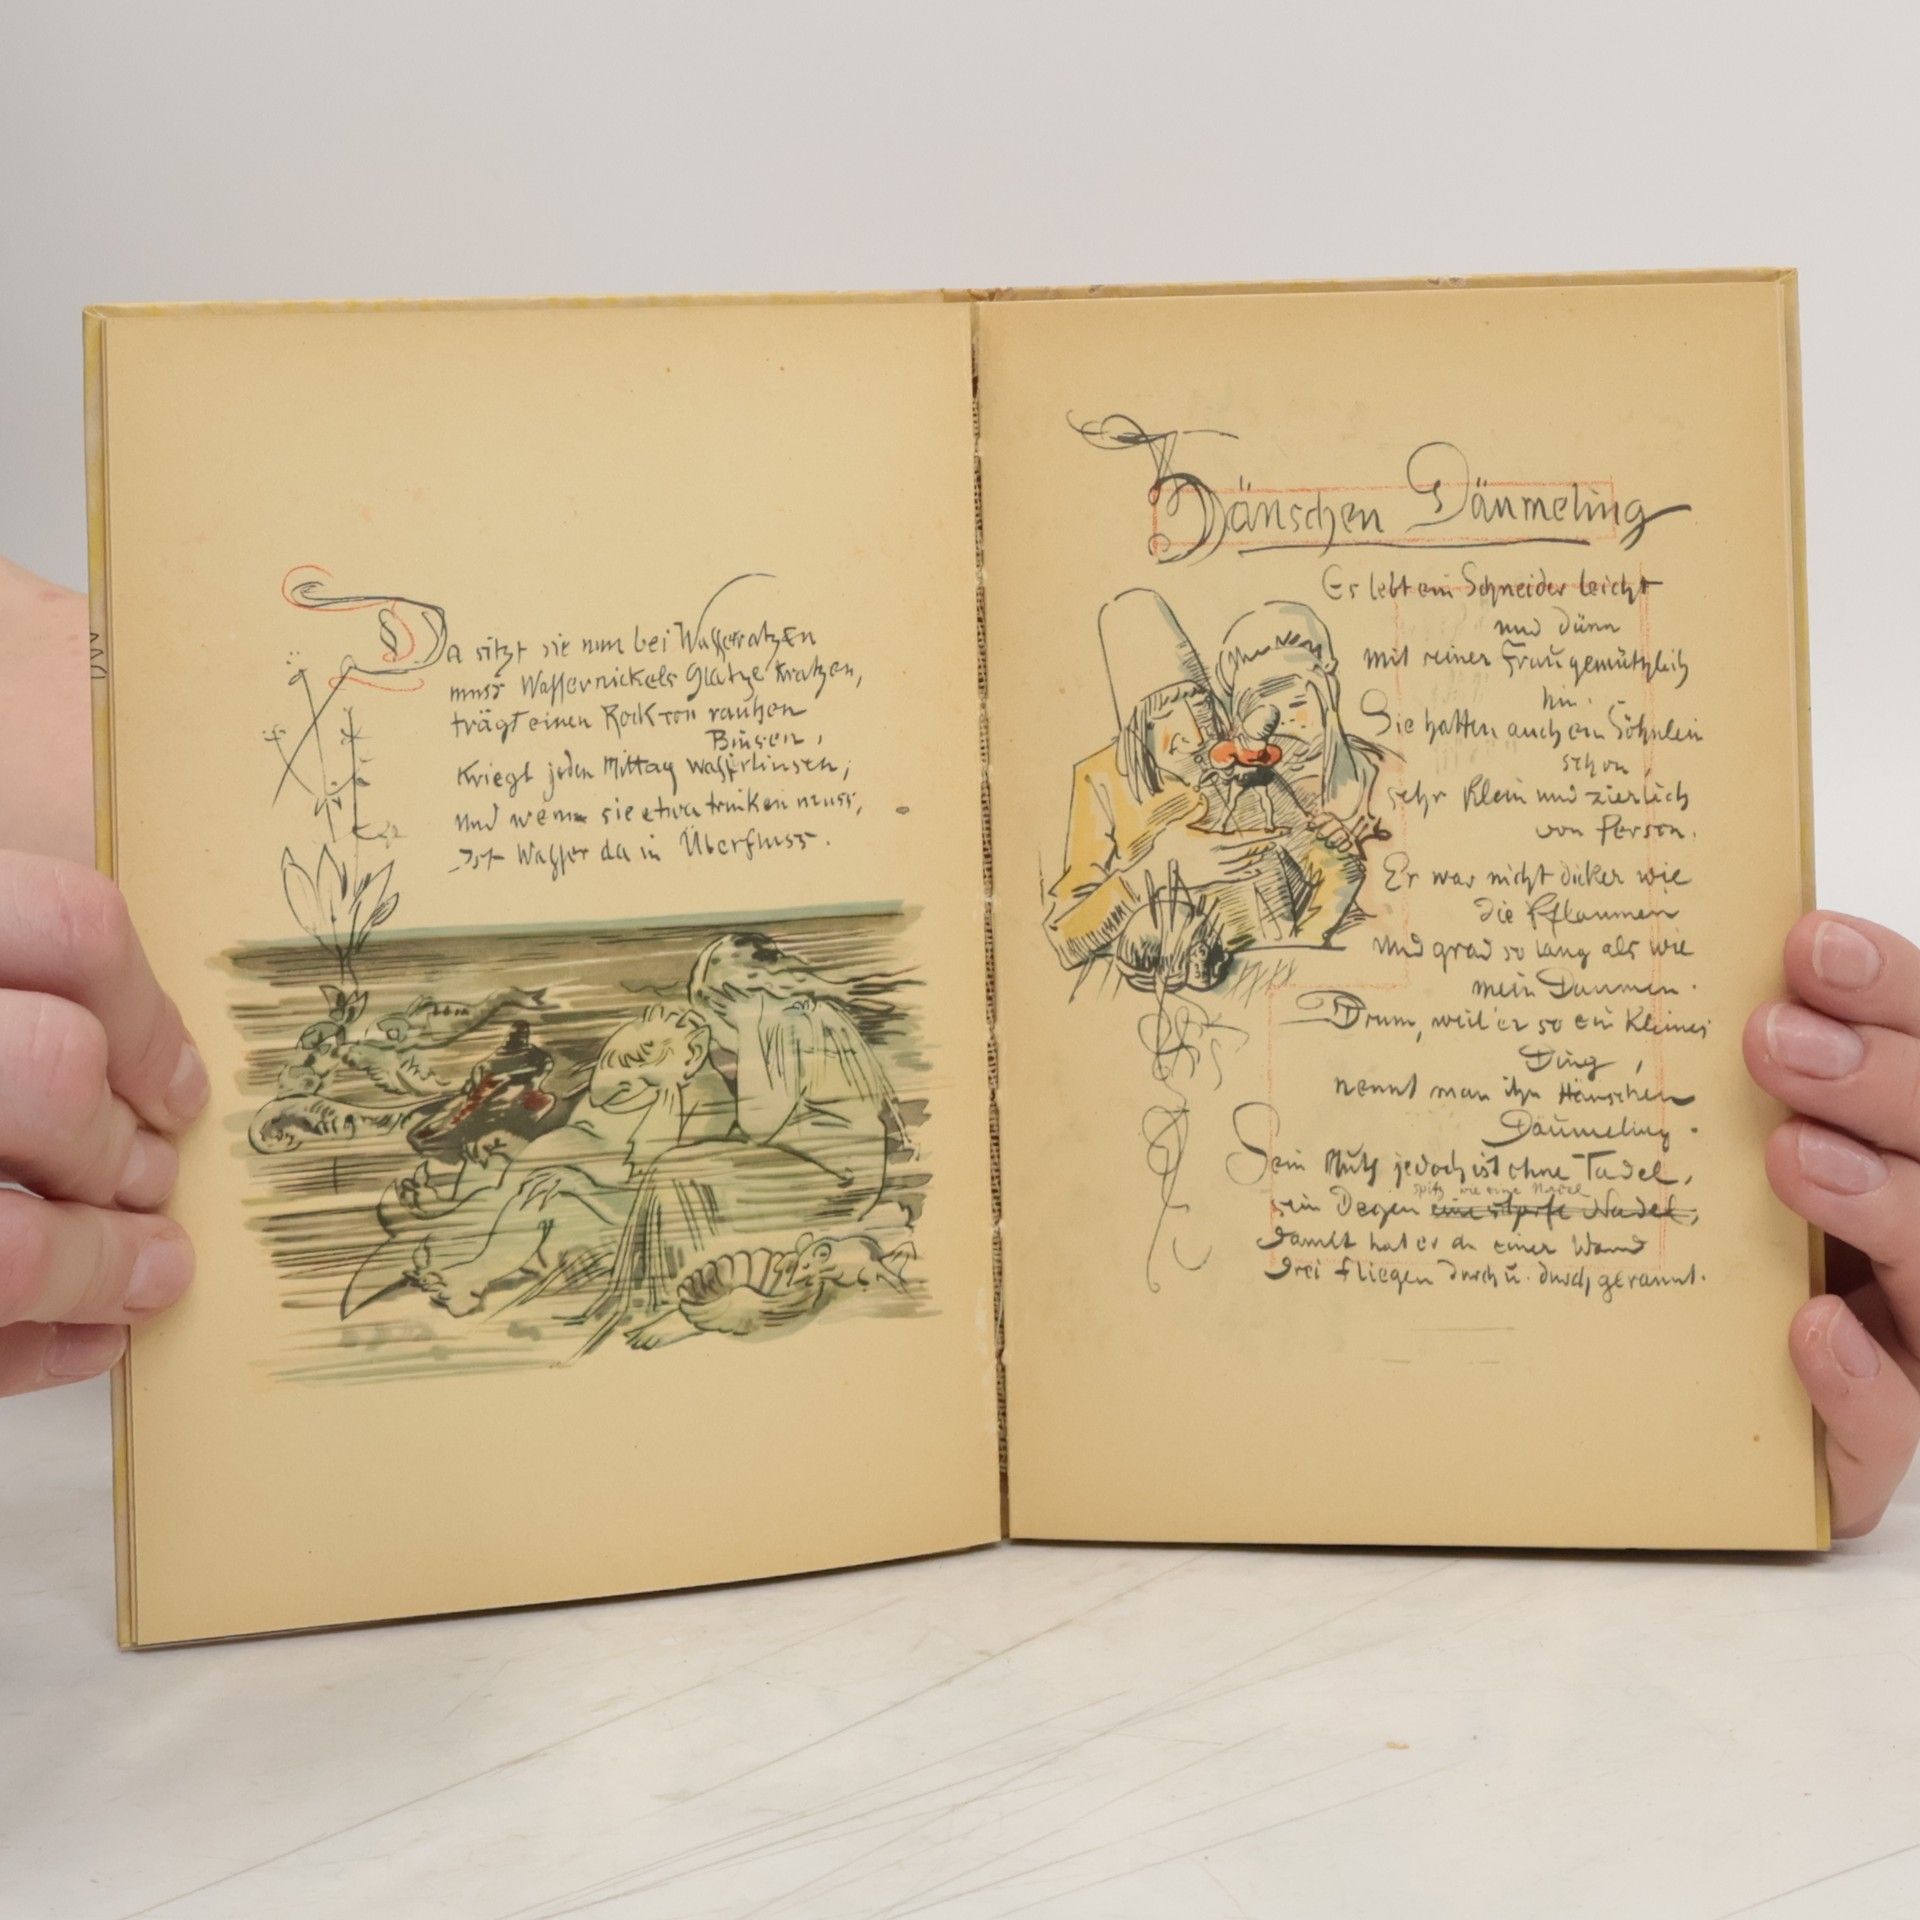 Da sitzt sie nun bei Wasserratzen
muss Wassernickels Glatze Kratzen,
trägt einen Rock von rauhen
Binsen,
kriegt jeden Mittag Wasserlinsen;
und wenn sie etwa trinken muss,
Ist Wasser da in Überfluss.
Hänschen Däumeling
Es lebt ein Schneider leicht
und dünn
mit seiner Frau gemützlich
hin.
Sie hatten auch ein Söhnlein
schon,
sehr klein und zierlich
von Person.
Er war nicht dicker wie
die Pflaumen
und grad so lang als wie
mein Daumen.
Drum, weil er so ein kleines
Ding,
nennt man ihn Hänschen
Däumeling.
Sein Muth jedoch ist ohne Tadel,
spitz wie eine Nadel
sein Degen eine scharfe Nadel;
damit hat er an einer Wand
drei Fliegen durch u. durch gerannt.